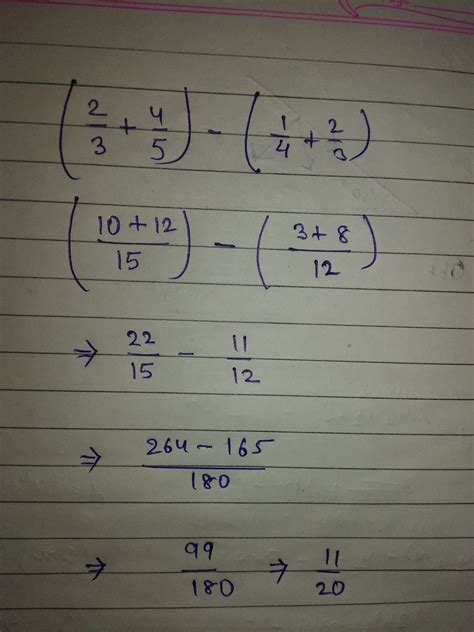 (2/3 + 4/5) - (1/4 + 2/3)
((10 + 12)/15) - ((3 + 8)/12)
⇒ 22/15 - 11/12
⇒ (264 - 165)/180
⇒ 99/180 ⇒ 11/20